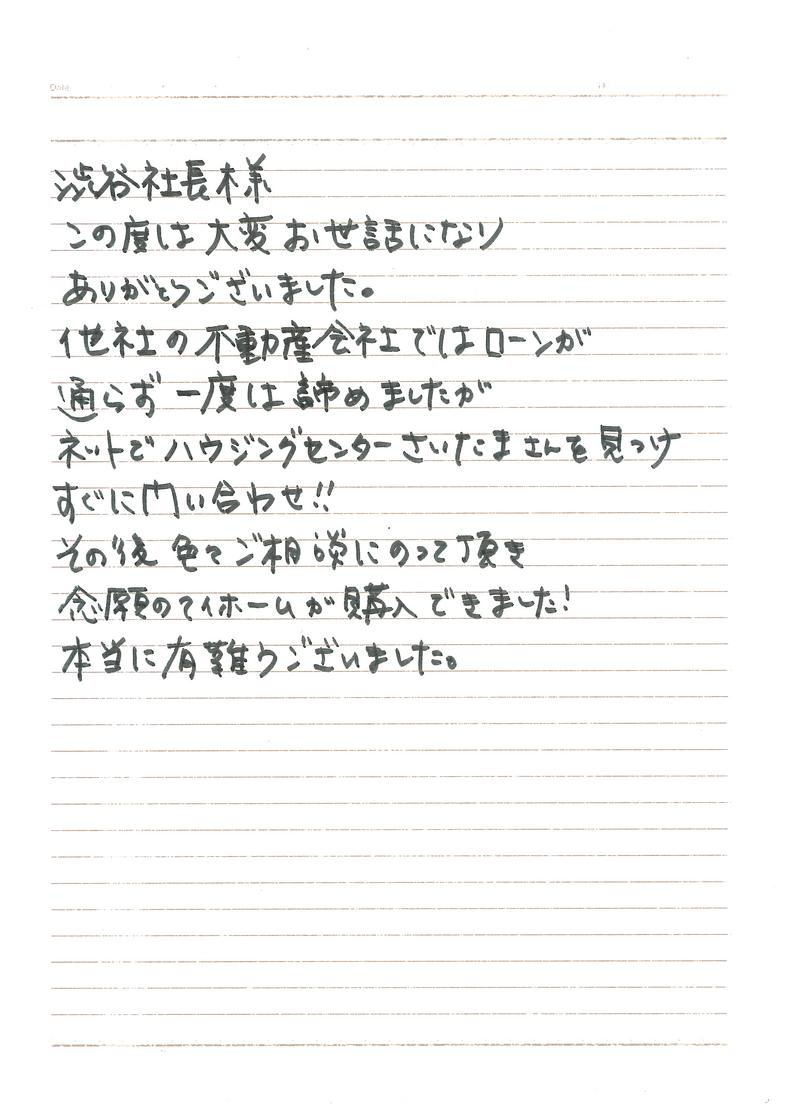 渋谷社長様
この度は大変お世話になり
ありがとうございました。
他社の不動産会社ではローンが
通らず一度は諦めましたが
ネットでハウジングセンターさいたまさんを見つけ
すぐに問い合わせ!!
その後色々ご相談にのって頂き
念願のマイホームが購入できました!
本当に有難うございました。